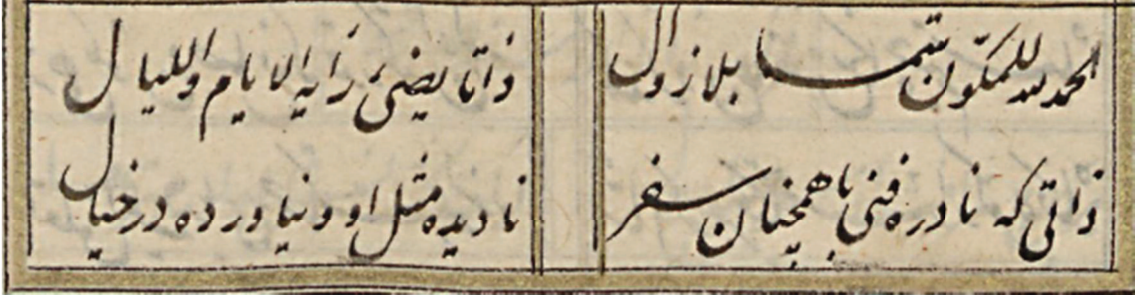 الحمد للمکوّن شمسا بلا زوال
ذاتا یضیئ رایه الایام واللیال
ذاتی که نادره فنی با همچنان سفر
نادیده مثل او و نیاورده در خیال